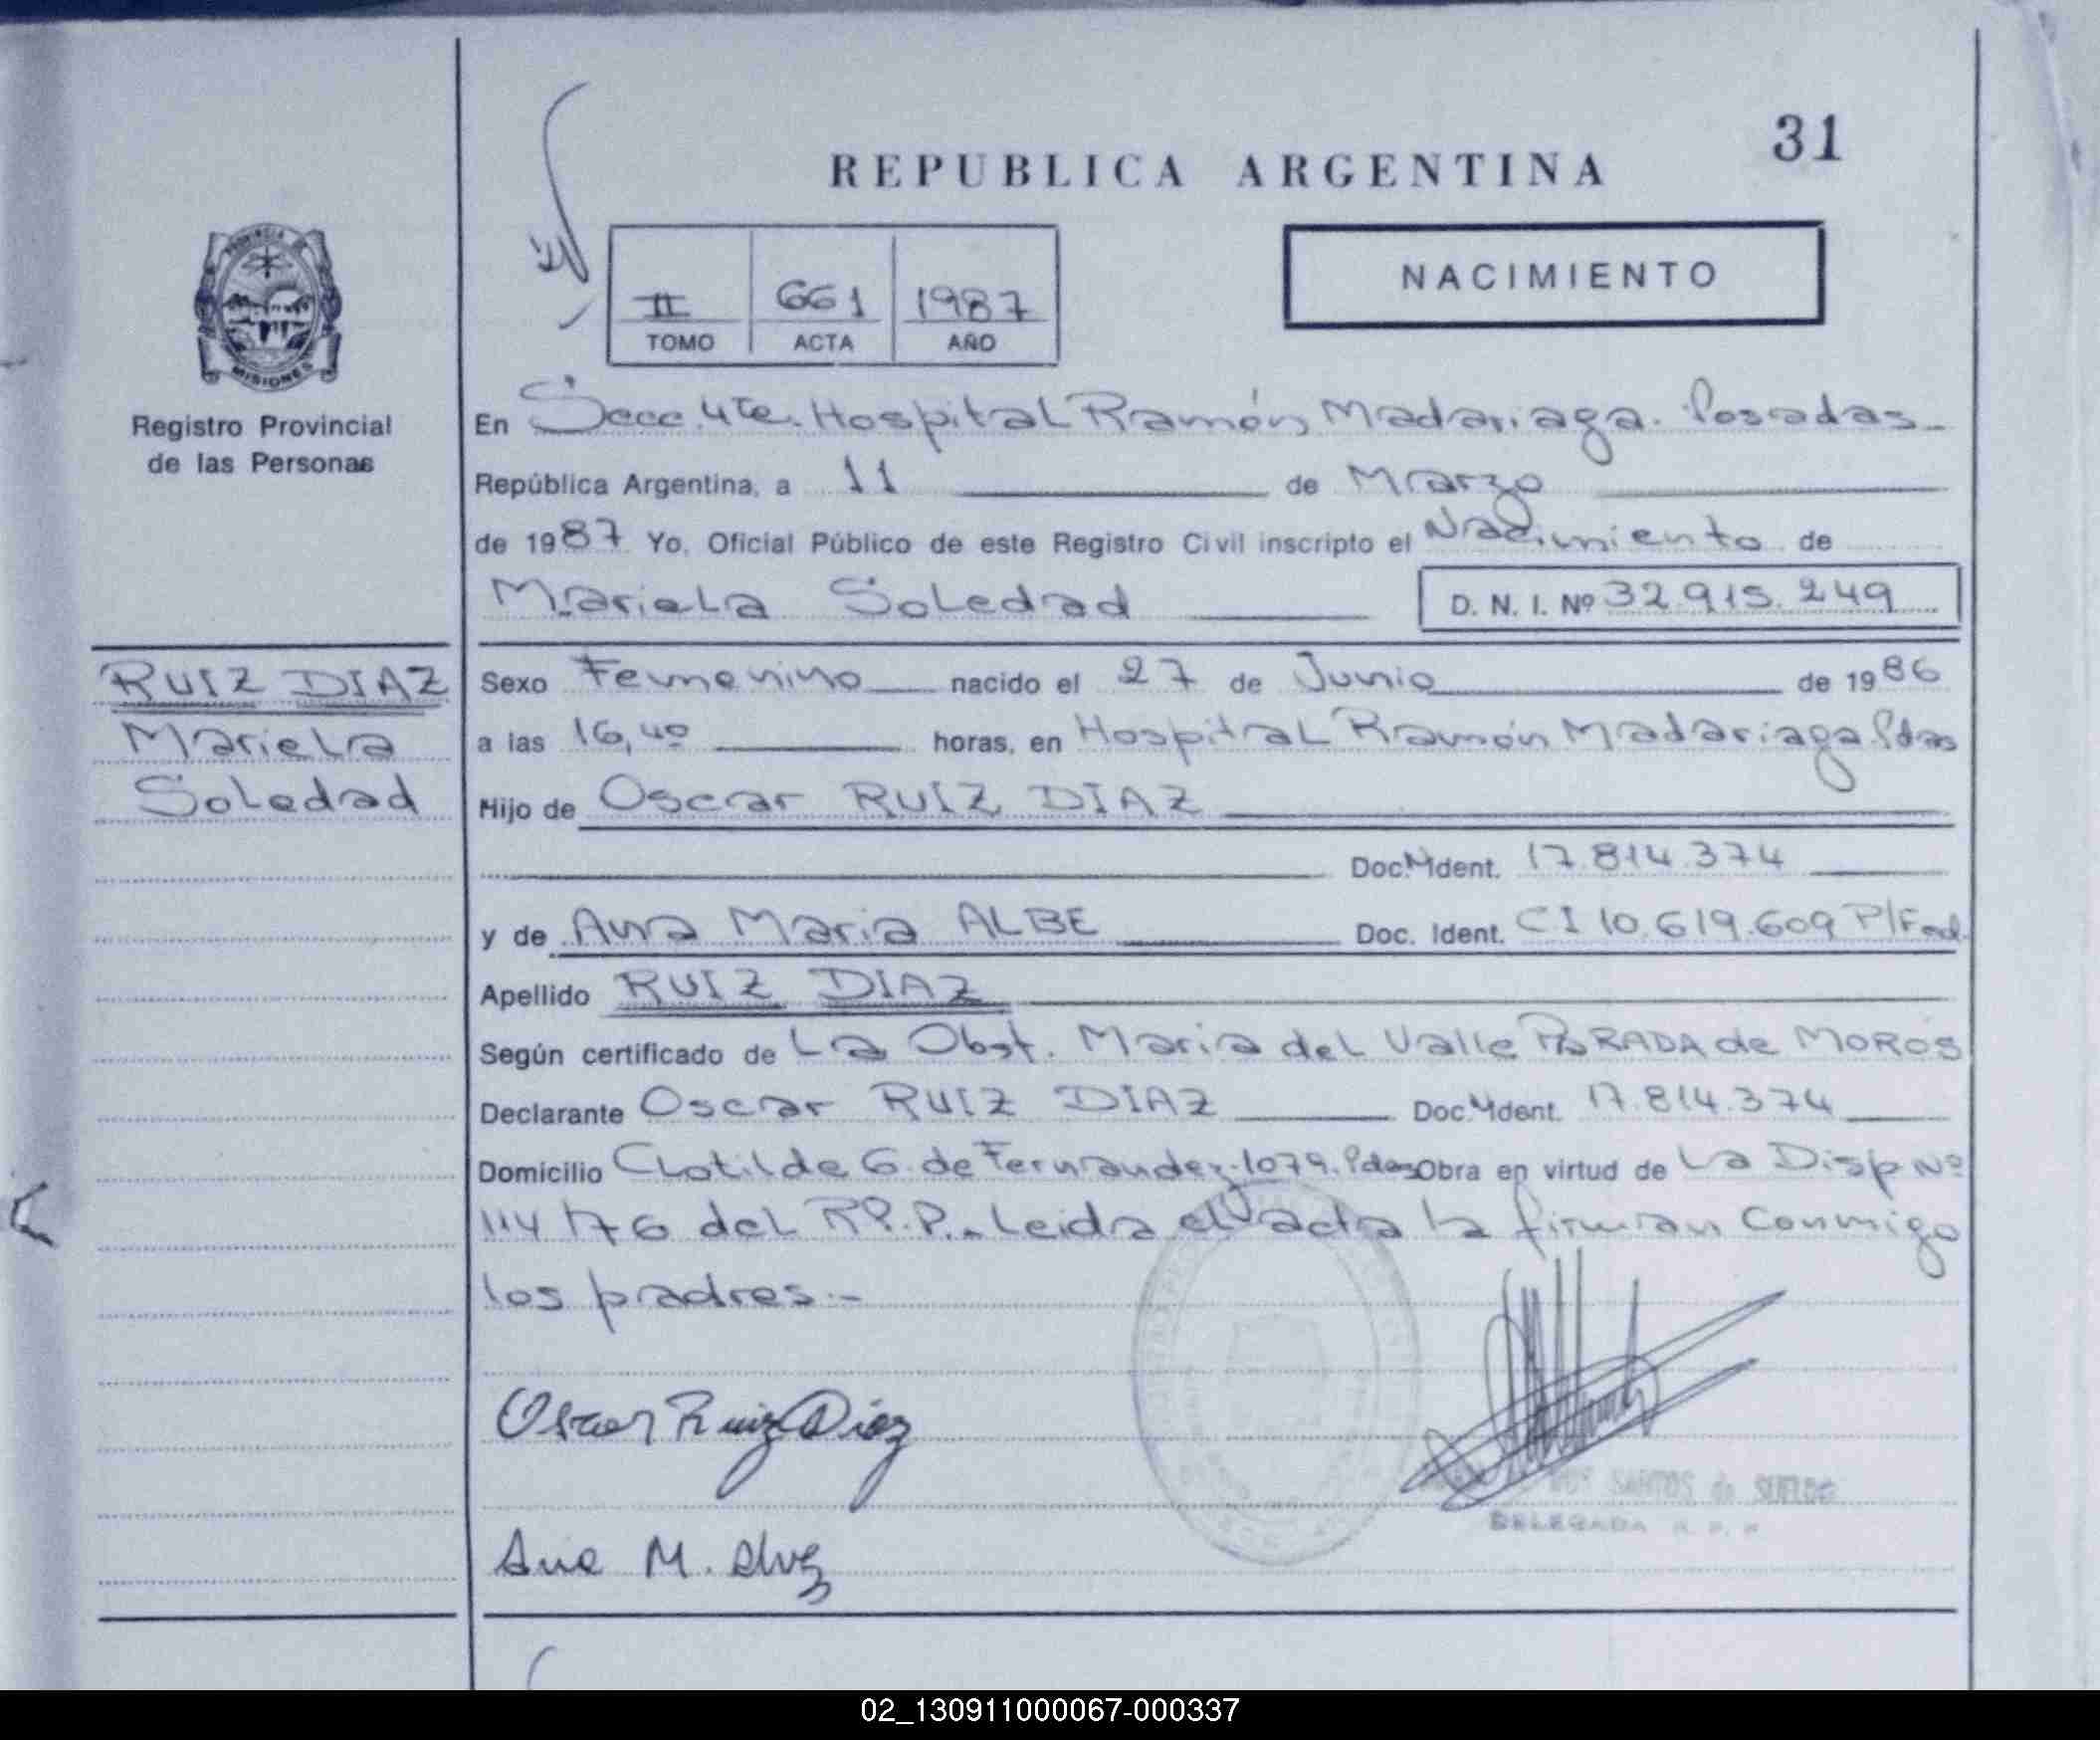 31
REPUBLICA ARGENTINA
NACIMIENTO
II 661 1987
TOMO ACTA AÑO
PROVINCIA DE
MISIONES
Registro Provincial
de las Personas
En Secc. 4te. Hospital Ramón Madariaga. Posadas
República Argentina, a 11 de Marzo
de 1987 Yo, Oficial Público de este Registro Civil inscripto el Nacimiento de
Mariela Soledad D. N. I. Nº 32.915.249
RUIZ DIAZ
Mariela
Soledad
Sexo Femenino nacido el 27 de Junio de 1986
a las 16,40 horas, en Hospital Ramón Madariaga Pdas
Hijo de Oscar RUIZ DIAZ
Doc. M Ident. 17.814.374
y de Ana Maria ALBE Doc. Ident. CI 10.619.609 P/Fed.
Apellido RUIZ DIAZ
Según certificado de La Obst. Maria del Valle PARADA de MOROS
Declarante Oscar RUIZ DIAZ Doc. M Ident. 17.814.374
Domicilio Clotilde G. de Fernandez 1079. Pdas Obra en virtud de La Disp Nº
114/76 del R.P.P.- Leida el acta la firman conmigo
los padres.-
Oscar Ruiz Diaz
SANTOS de
DELEGADA R. P. P.
Ana M.
02_130911000067-000337